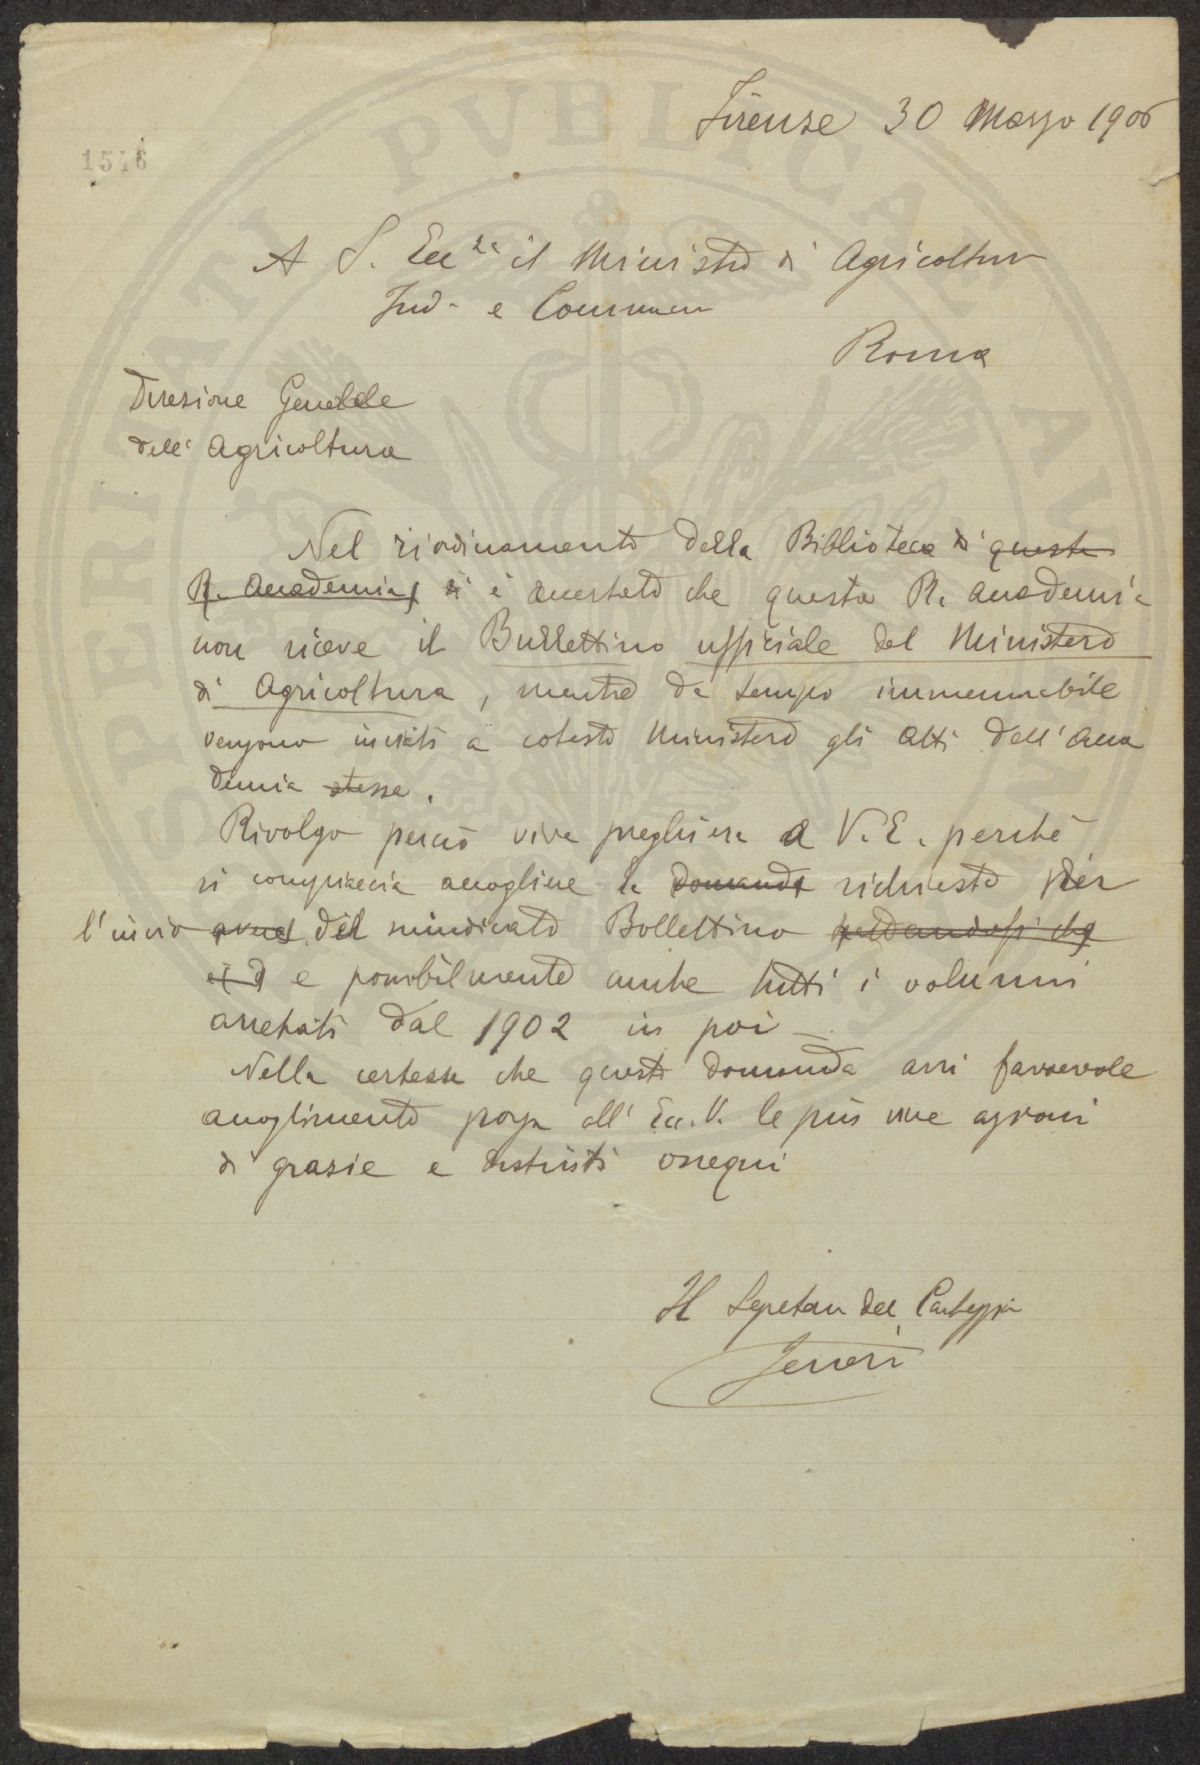 1516
Firenze 30 Marzo 1906
A S. Ecc.za il Ministro di Agricoltura
Ind. e Commercio
Roma
Direzione Generale
dell' Agricoltura
Nel riordinamento della Biblioteca di questa
R. Accademia si è accertato che questa R. Accademia
non riceve il Bullettino ufficiale del Ministero
di Agricoltura, mentre da tempo immemorabile
vengono inviati a cotesto Ministero gli Atti dell' Acca
demia stessa.
Rivolgo perciò viva preghiera a V. E. perchè
si compiaccia accogliere la domanda richiesta per
l'invio del suindicato Bollettino
e possibilmente anche tutti i volumi
arretrati dal 1902 in poi
Nella certezza che questa domanda avrà favorevole
accoglimento porgo all' Ecc. V. le più vive azioni
di grazie e distinti ossequi
Il Segretario del Carteggio